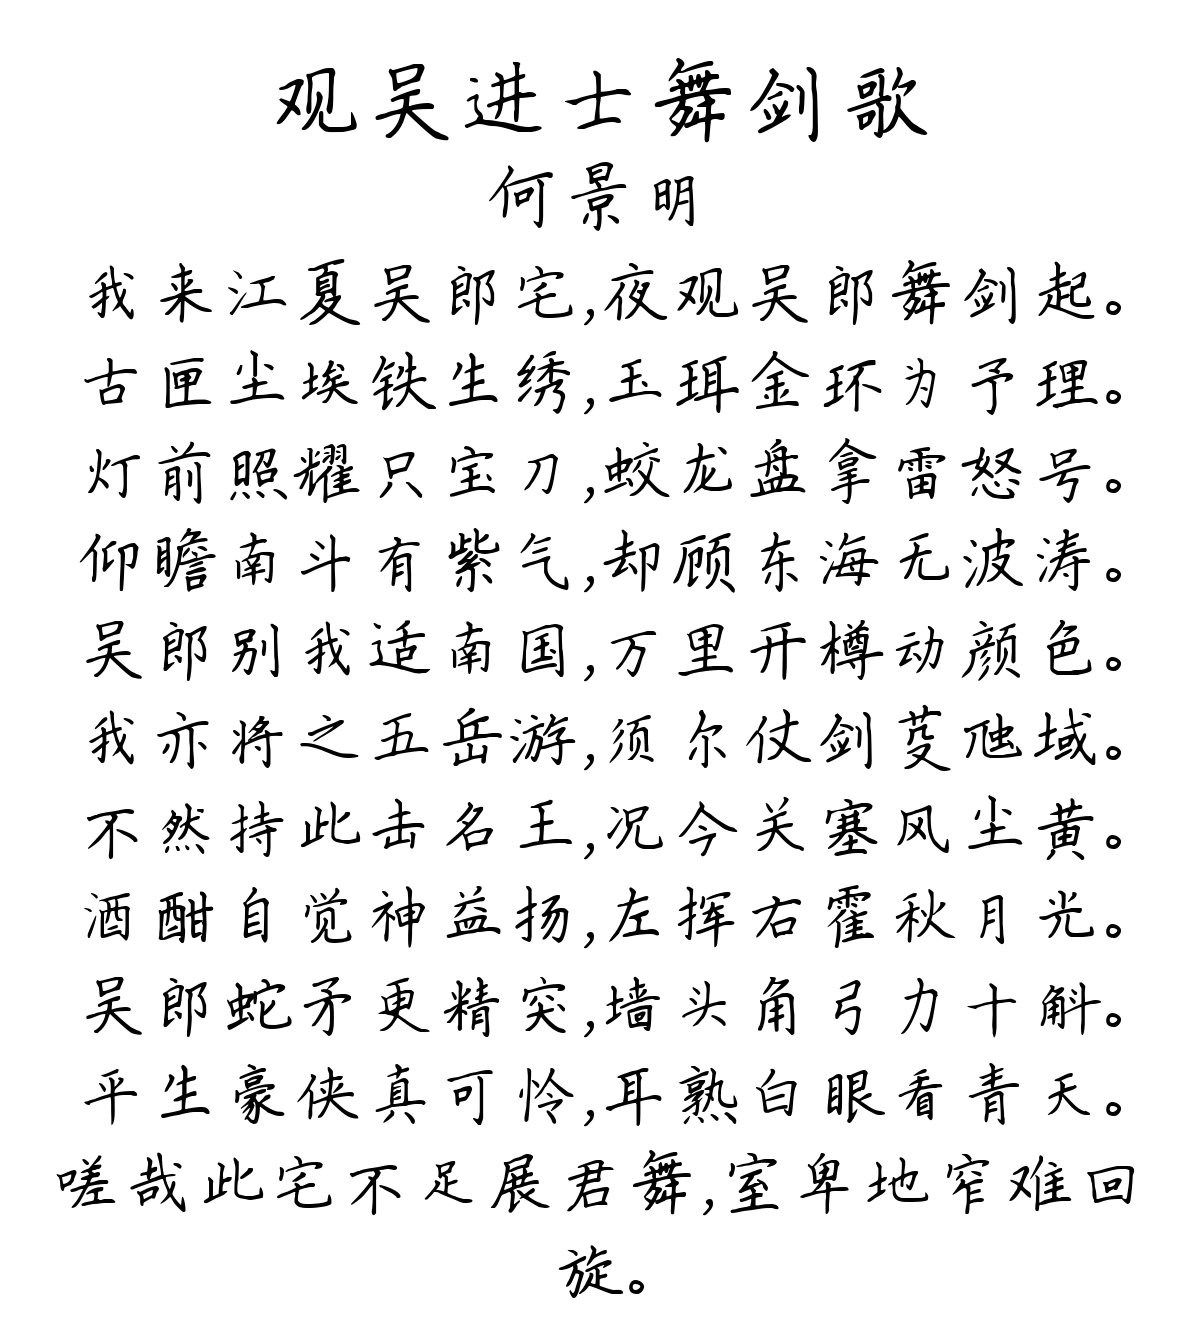 观吴进士舞剑歌
何景明
我来江夏吴郎宅,夜观吴郎舞剑起。
古匣尘埃铁生绣,玉珥金环为予理。
灯前照耀只宝刀,蛟龙盘拿雷怒号。
仰瞻南斗有紫气,却顾东海无波涛。
吴郎别我适南国,万里开樽动颜色。
我亦将之五岳游,须尔仗剑芟虺域。
不然持此击名王,况今关塞风尘黄。
酒酣自觉神益扬,左挥右霍秋月光。
吴郎蛇矛更精突,墙头角弓力十斛。
平生豪侠真可怜,耳熟白眼看青天。
嗟哉此宅不足展君舞,室卑地窄难回
旋。